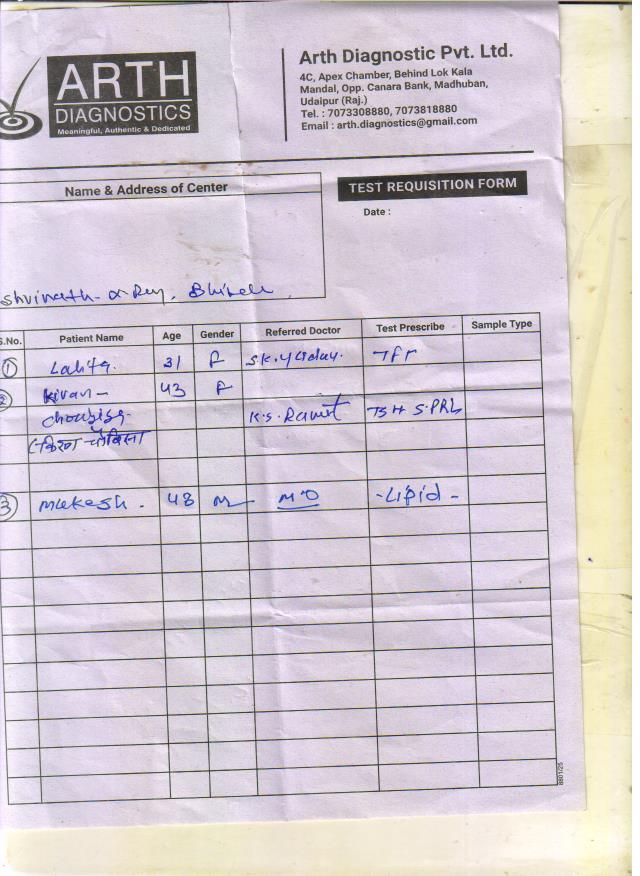 ARTH
DIAGNOSTICS
Meaningful, Authentic & Dedicated
Arth Diagnostic Pvt. Ltd.
4C, Apex Chamber, Behind Lok Kala
Mandal, Opp. Canara Bank, Madhuban,
Udaipur (Raj.)
Tel. : 7073308880, 7073818880
Email : arth.diagnostics@gmail.com
Name & Address of Center
TEST REQUISITION FORM
Date :
S.No. Patient Name Age Gender Referred Doctor Test Prescribe Sample Type
1 Lalita. 31 F
2 Kiran - 43 F
Choubisa. TSH S.PRL
(किरण चौबिसा
3 Mukesh. 48 M MO -Lipid-
8801/25